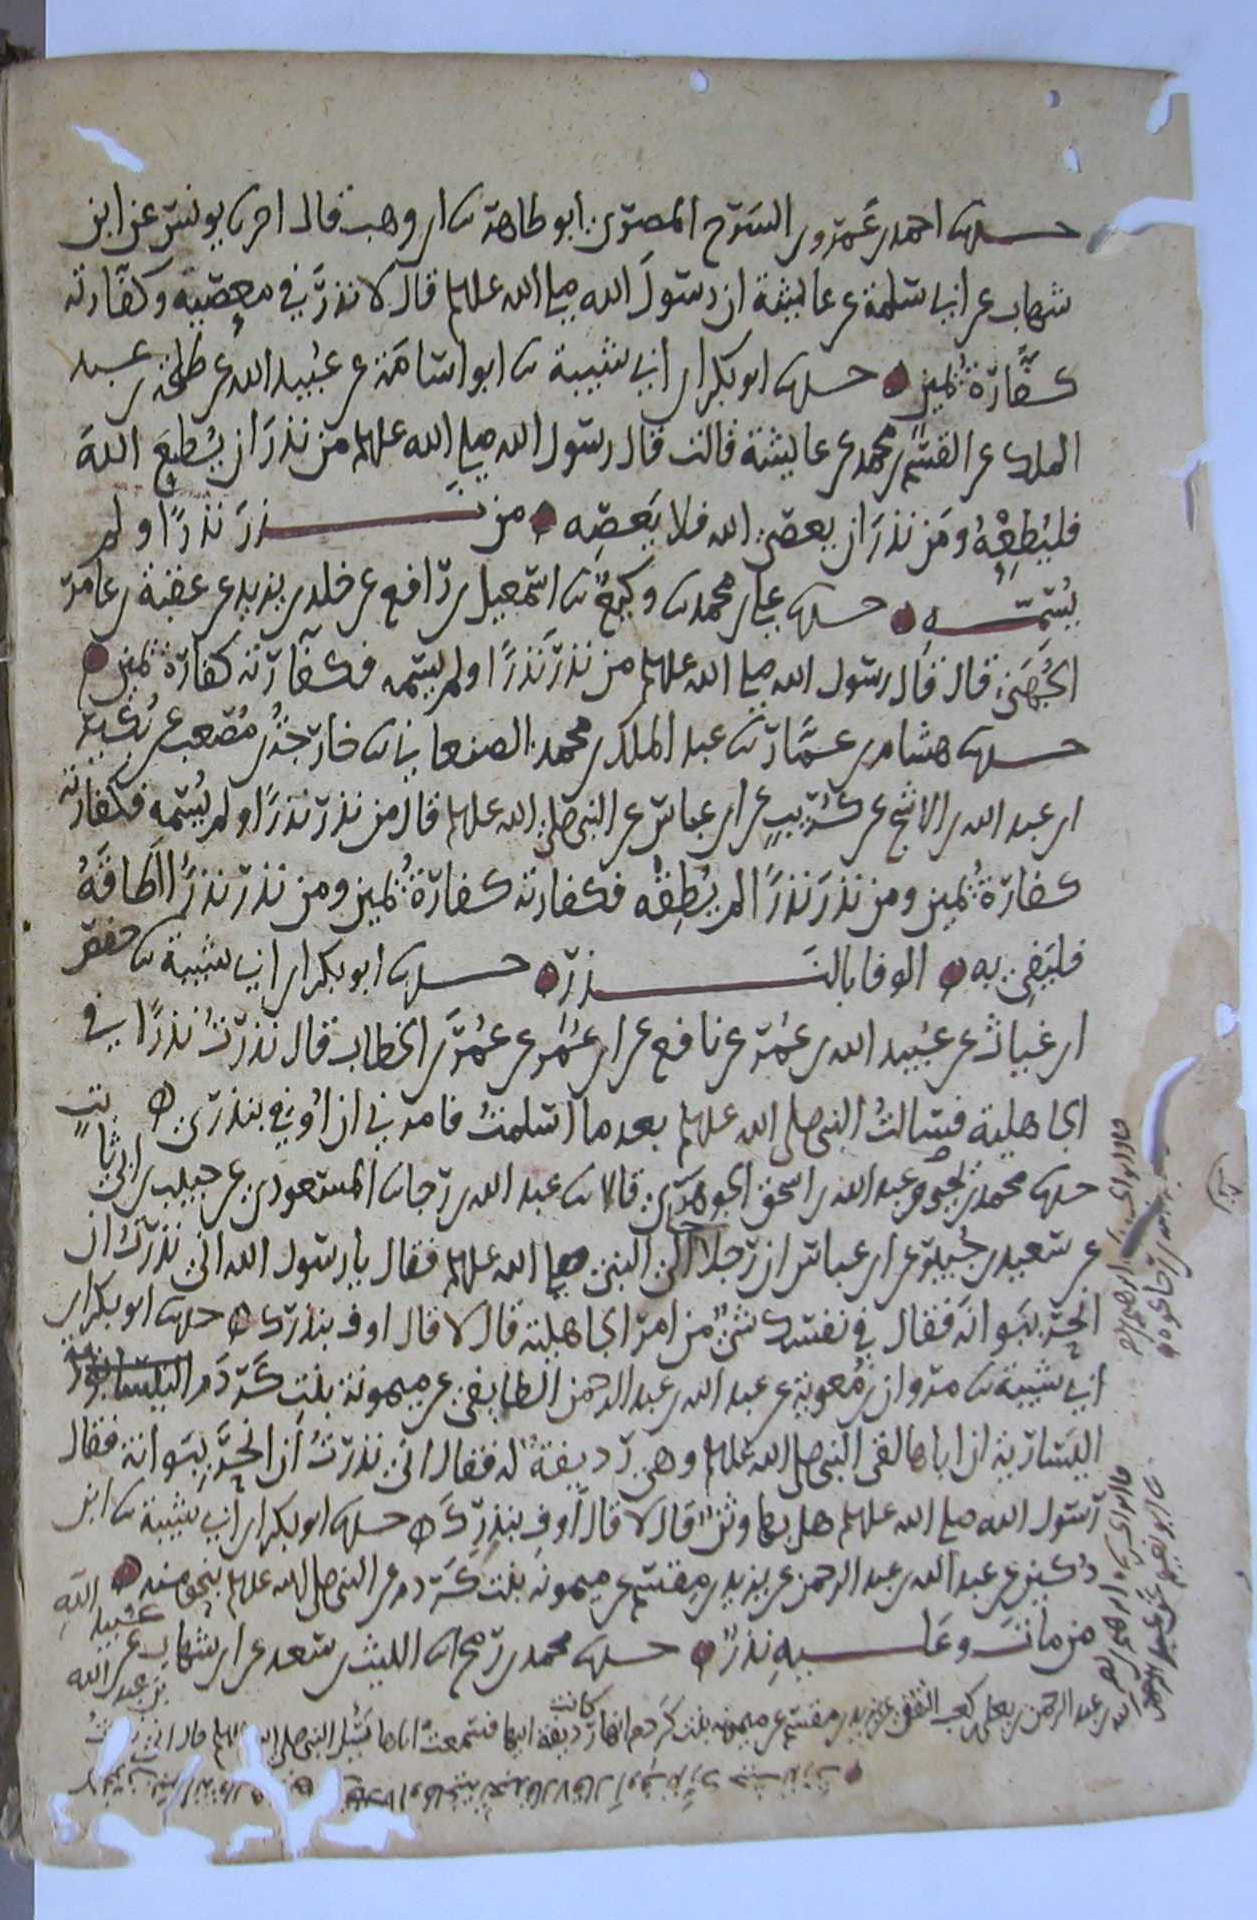 حدثنا احمد بن عمرو بن السرح المصري ابو طاهر ثنا ابن وهب قال اخبرنا يونس عن ابن
شهاب عن ابي سلمة عن عايشة ان رسول الله صلى الله عليه وسلم قال لا نذر في معصية وكفارته
كفارة يمين حدثنا ابو بكر ابن ابي شيبة ثنا ابو اسامة عن عبيد الله عن طلحة بن عبد
الملك عن القسم بن محمد عن عايشة قالت قال رسول الله صلى الله عليه وسلم من نذر ان يطيع الله
فليطعه ومن نذر ان يعصي الله فلا يعصه من نذر نذرا ولم
يسمه حدثنا علي بن محمد ثنا وكيع ثنا اسمعيل بن رافع عن خلد بن يزيد عن عقبة بن عامر
الجهني قال قال رسول الله صلى الله عليه وسلم من نذر نذرا ولم يسمه فكفارته كفارة يمين
حدثنا هشام بن عمار ثنا عبد الملك بن محمد الصنعاني ثنا خارجة بن مصعب عن بكير
ابن عبد الله بن الاشج عن كريب عن ابن عباس عن النبي صلى الله عليه وسلم قال من نذر نذرا ولم يسمه فكفارته
كفارة يمين ومن نذر نذرا لم يطقه فكفارته كفارة يمين ومن نذر نذرا اطاقه
فليفي به الوفا بالنذر حدثنا ابو بكر ابن ابي شيبة ثنا حفص
ابن غياث عن عبيد الله بن عمر عن نافع عن ابن عمر عن عمر بن الخطاب قال نذرت نذرا في
الجاهلية فسالت النبي صلى الله عليه وسلم بعد ما اسلمت فامرني ان اوفي بنذري
حدثنا محمد بن يحيى وعبد الله بن اسحق الجوهري قالا ثنا عبد الله بن رجا ثنا المسعودي عن حبيب بن ابي ثابت
عن سعيد بن جبير عن ابن عباس ان رجلا جا الى النبي صلى الله عليه وسلم فقال يا رسول الله اني نذرت ان
انحر ببوانة فقال في نفسك شي من امر الجاهلية قال لا قال اوف بنذرك حدثنا ابو بكر ابن
ابي شيبة ثنا مروان بن معوية عن عبد الله بن عبد الرحمن الطايفي عن ميمونة بنت كردم
اليسارية ان اباها لقي النبي صلى الله عليه وسلم وهي رديفة له فقال اني نذرت ان انحر ببوانة فقال
رسول الله صلى الله عليه وسلم هل بها وثن قال لا قال اوف بنذرك حدثنا ابو بكر ابن ابي شيبة ثنا ابن
دكين عن عبد الله بن عبد الرحمن عن يزيد بن مقسم عن ميمونة بنت كردم عن النبي صلى الله عليه وسلم بنحو منه
من مات وعليه نذر حدثنا محمد بن رمح ثنا الليث بن سعد عن ابن شهاب عن عبيد الله
بن عبد الله
الله بن عبد الرحمن بن يعلى بن كعب الثقفي عن يزيد بن مقسم عن ميمونة بنت كردم انها كانت رديفة ابيها فسمعت اباها يسئل النبي صلى الله عليه وسلم قال اني نذرت